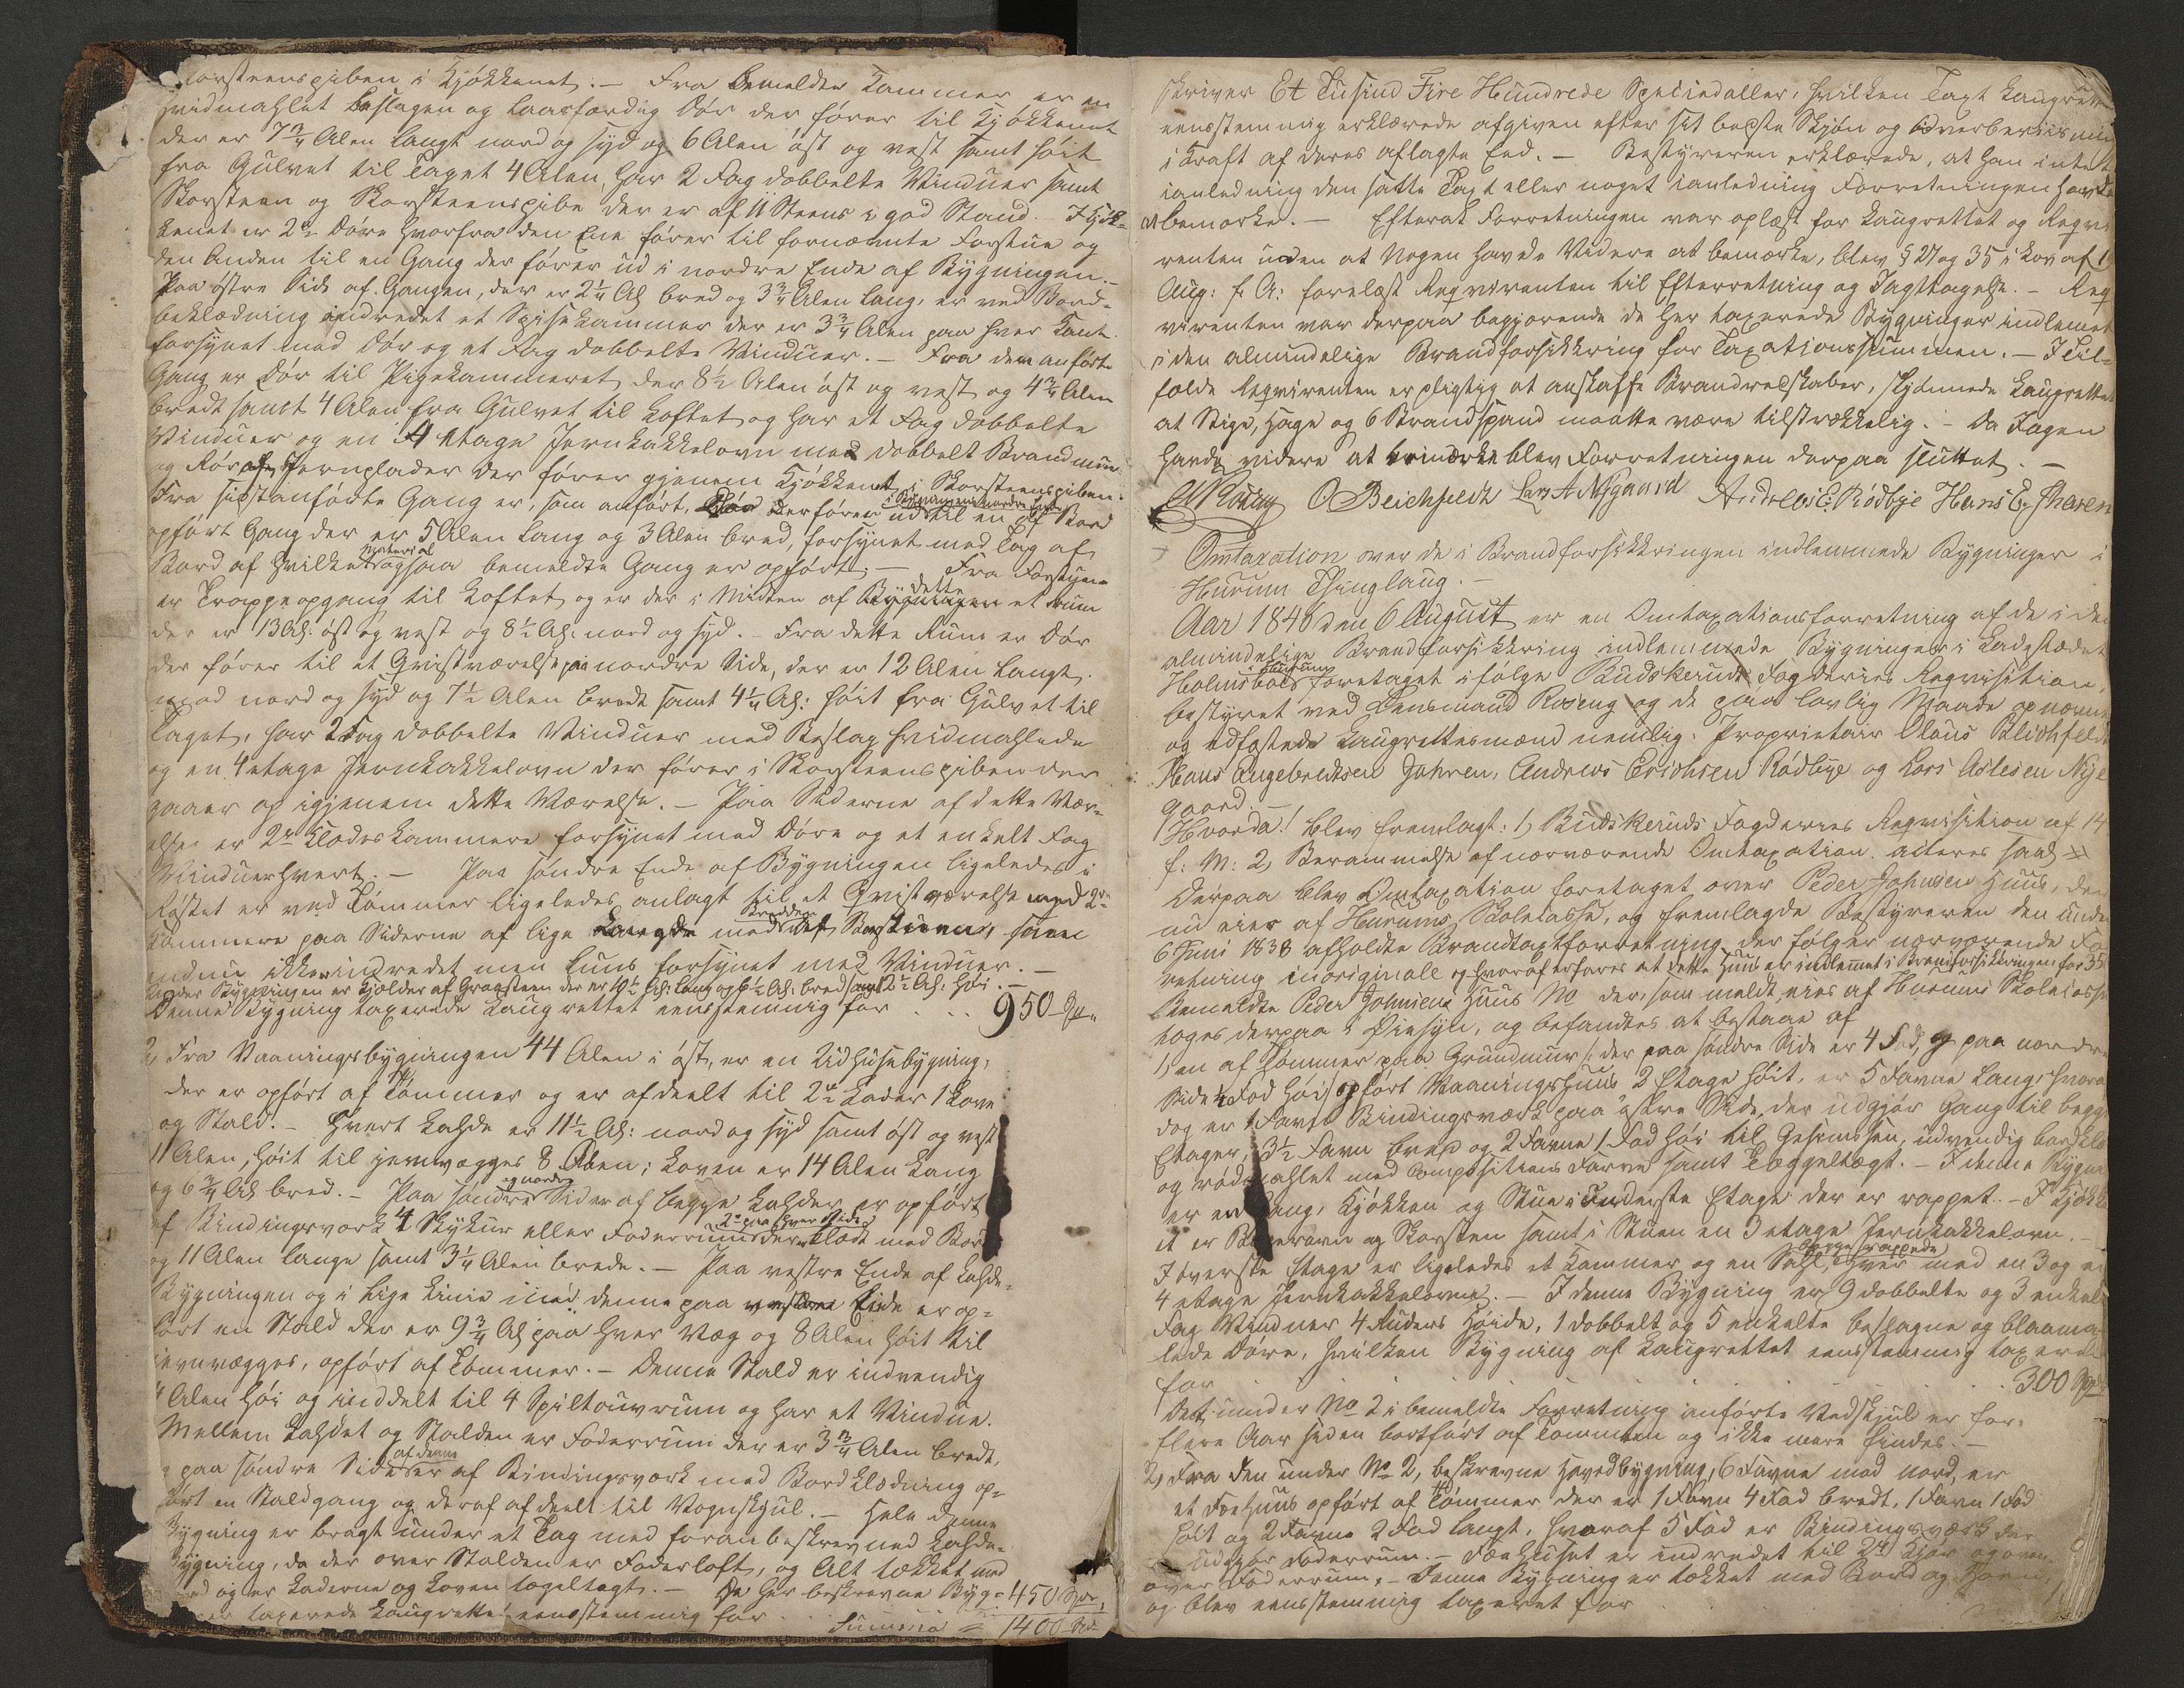 Skorsteenspiben i Kjøkkenet. — Fra bemeldte Kammer er en
hvidmahlet beslagen og laasfærdig Dør der fører til Kjøkkenet
der er 7 3/4 Alen langt nord og syd og 6 Alen øst og vest samt høit
fra Gulvet til Taget 4 Alen, har 2 Fag dobbelte Vinduer samt
Skorsteen og Skorsteenspibe der er af Steens i god Stand. — I Kjøk-
kenet er 2de Døre hvorfra den Ene fører til fornævnte Forstue og
den Anden til en Gang der fører ud i nordre Ende af Bygningen. —
Paa østre Side af Gangen, der er 2 1/4 Al bred og 3 3/4 Alen lang, er ved Bord-
beklædning indredet et Spisekammer der er 3 3/4 Alen paa hver Kant
forsynet med Dør og et Fag dobbelte Vinduer. — Fra den anførte
Gang er Dør til Pigekammeret der 8 1/2 Alen øst og vest og 4 3/4 Alen
bredt samt 4 Alen fra Gulvet til Loftet og har et Fag dobbelte
Vinduer og en 4 Etage Jernkakkelovn med dobbelt Brandmuur
og Rør af Jernplader der fører gjenem Kjøkkenet i Skorsteenspiben.
Fra sidstanførte Gang er, som anført, Dør der fører ud i Bygningens nordre Ende til en af Bord
opført Gang der er 5 Alen lang og 3 Alen bred, forsynet med Tag af
Bord af hvilket Material ogsaa bemeldte Gang er opført; — Fra Forstuen
er Trappeopgang til Loftet og er der i Midten af dette et Rum
der er 13 Al: øst og vest og 8 1/2 Al: nord og syd. — Fra dette Rum er Dør
der fører til et Qvistværelse paa nordre Side, der er 12 Alen langt
nord og syd og 7 1/2 Alen bredt samt 4 1/4 Al: høit fra Gulvet til
Taget, har 2 Fag dobbelte Vinduer med Beslag hvidmahlede
og en 4 etage Jernkakkelovn der fører i Skorsteenspiben der
gaaer op igjenem dette Værelse. — Paa Siderne af dette Vær-
else er 2de Klædeskammere forsynet med Døre og et enkelt Fag
Vinduer hvert. — Paa søndre Ende af Bygningen ligeledes i
Røstet er ved Tømmer ligeledes anlagt til et Qvistværelse med 2de
Kammere paa Siderne af lige Længde med Bredden som
endnu ikke indredet men kuns forsynet med Vinduer. —
Under Bygningen er Kjælder af Graasteen der er 10 1/2 Al: lang og 6 1/2 Al: bred samt 2 1/2 Al: høi. —
Denne Bygning taxerede Laugrettet eensstemmig for . . . 950 Spd
2, Fra Vaaningsbygningen 44 Alen i øst, er en Udhusebygning,
der er opført af Tømmer og er afdeelt til 2de Lader 1 Love
og Stald. — Hvert Lahde er 11 1/2 Al: nord og syd samt øst og vest
11 Alen, høit til jernvægges 8 Alen; Loven er 14 Alen lang
og 6 3/4 Al bred. — Paa søndre og nordre Sider af begge Lahder er opført
af Bindingsværk 4 Skykur eller Foderrum 2de paa hver Side der klædt med Bord
og 11 Alen lange samt 3 1/4 Alen brede. — Paa vestre Ende af Lahde-
Bygningen og i lige Linie med denne paa vestre Side er op-
ført en Stald der er 9 3/4 Al paa hver Væg og 8 Alen høit til
jevnvægges, opført af Tømmer. — Denne Stald er indvendig
4 Alen høi og inddelt til 4 Spiltouvrum og har et Vindue.
Mellem Lahdet og Stalden er Foderrum der er 3 3/4 Alen bredt,
og paa søndre Side af denne er af Bindingsværk med Bordklædning op-
ført en Staldgang og deraf afdeelt til Vognskjul. — Hele denne
Bygning er bragt under et Tag med foranbeskrevned Lahde-
Bygning, da der over Stalden er Foderloft, og Alt tækket med
Bord og er Laderne og Loven tegeltagt. — De her beskrevne Byg- 450 Spd,
taxerede Laugrettet eensstemmig for . . Summa = 1400 Spd
skriver Et Tusind Fire Hundrede Speciedaller, hvilken Taxt Laugrettet
eensstemmig erklærede afgiven efter sit bedste Skjøn og Overbeviisning
i Kraft af deres aflagte Eed. — Bestyreren erklærede, at han intet
ianledning den satte Taxt eller noget ianledning Forretningen havde
at bemærke. — Efterat Forretningen var oplæst for Laugrettet og Reqvi
renten uden at Nogen havde Videre at bemærke, blev § 27 og 35 i Lov af 19
Aug: f. A: forelæst Reqvirenten til Efterretning og Iagttagelse. — Req
virenten var derpaa begjærende de her taxerede Bygninger indlemet
i den almindelige Brandforsikkring for Taxationssummen. — I Til-
fælde Reqvirenten er pligtig at anskaffe Brandredskaber, skjønnede Laugrettet
at Stige, Hage og 6 Brandspand maatte være tilstrækkelig. — Da Ingen
havde videre at bemærke blev Forretningen derpaa sluttet. —
Rosing O Beichfeldt Lars A Nygaard Andreas E: Rødbye Hans E. Jharen
Omtaxation over de i Brandforsikkringen indlemmede Bygninger i
Hurum Thinglaug. —
Aar 1846 den 6 August er en Omtaxationsforretning af de i den
almindelige Brandforsikkring indlemmede Bygninger i Ladestædet
Holmsboes i Hurum foretaget ifølge Budskeruds Fogderies Reqvisition,
bestyret ved Lensmand Rosing og de paa lovlig Maade opnævnte
og edfæstede Laugrettesmænd nemlig: Proprietair Olaus Blichfeldt
Hans Engebredtsen Jahren, Andreas Erichsen Rødbye og Lars Aslesen Nye
gaard. —
Hvorda! blev fremlagt: 1, Budskeruds Fogderies Reqvisition af 14
f: M: 2, Berammelse af nærværende Omtaxation. acteres saal.
Derpaa blev Omtaxation foretaget over Peder Johnsen Huus, der
nu eies af Hurums Skolecasse, og fremlagde Bestyreren den under
6 Juni 1838 afholdte Brandtaxtforretning der følger nærværende For
retning inoriginale og hvoraf erfares at dette Huus er indlemet i Brandforsikkringen for 350
Bemeldte Peder Johnsens Huus No der, som meldt, eies af Hurums Skolecasse
toges derpaa i Øiesyn, og befandtes at bestaae af
1, en af Tømmer paa Grundmuur /: der paa søndre Side er 4 Fod, og paa nordre
Side 1/2 Fod høi :/ opført Vaaningshuus 2 Etage høit, er 5 Favne lang, hvoraf
dog er 1 Favn Bindingsværk paa østre Side, der udgjør Gang til begge
Etager, 3 1/2 Favn bred og 2 Favne 1 Fod høi til Gesimssen, udvendig bordklædt
og rødmahlet med Compositions Farve samt Teggeltægt. — I denne Bygning
er en Gang, Kjøkken og Stue i underste Etage der er rappet. — I Kjøkken
et er Bagerovn og Skorsten samt i Stuen en 3 etage Jernkakkelovn. —
I øverste Etage er ligeledes et Kammer og en Sahl, begge rappede hver med en 3 og en
4 etage Jernkakkelovne. — I denne Bygning er 9 dobbelte og 3 enkelte
Fag Vinduer 4 Ruders Høide, 1 dobbelt og 5 enkelte beslagne og blaama
lede Døre, hvilken Bygning af Laugrettet eensstemmig taxeredes
for . . . 300 Spd
Det under No 2 i bemeldte Forretning anførte Vedskjul er for
flere Aar siden bortført af Tomten og ikke mere findes. —
2, Fra den under No 2, beskrevne Hovedbygning, 6 Favne mod nord, er
et Foehuus opført af Tømmer der er 1 Favn 4 Fod bredt, 1 Favn 1 Fod
høit og 2 Favne 2 Fod langt, hvoraf 5 Fod er Bindingsværk der
udgjør Foderrum. — Fæehuset er indredet til 2de Kjør og oven
over Foderrum. — Denne Bygning er tækket med Bord og Torv,
og blev eensstemmig taxeret for